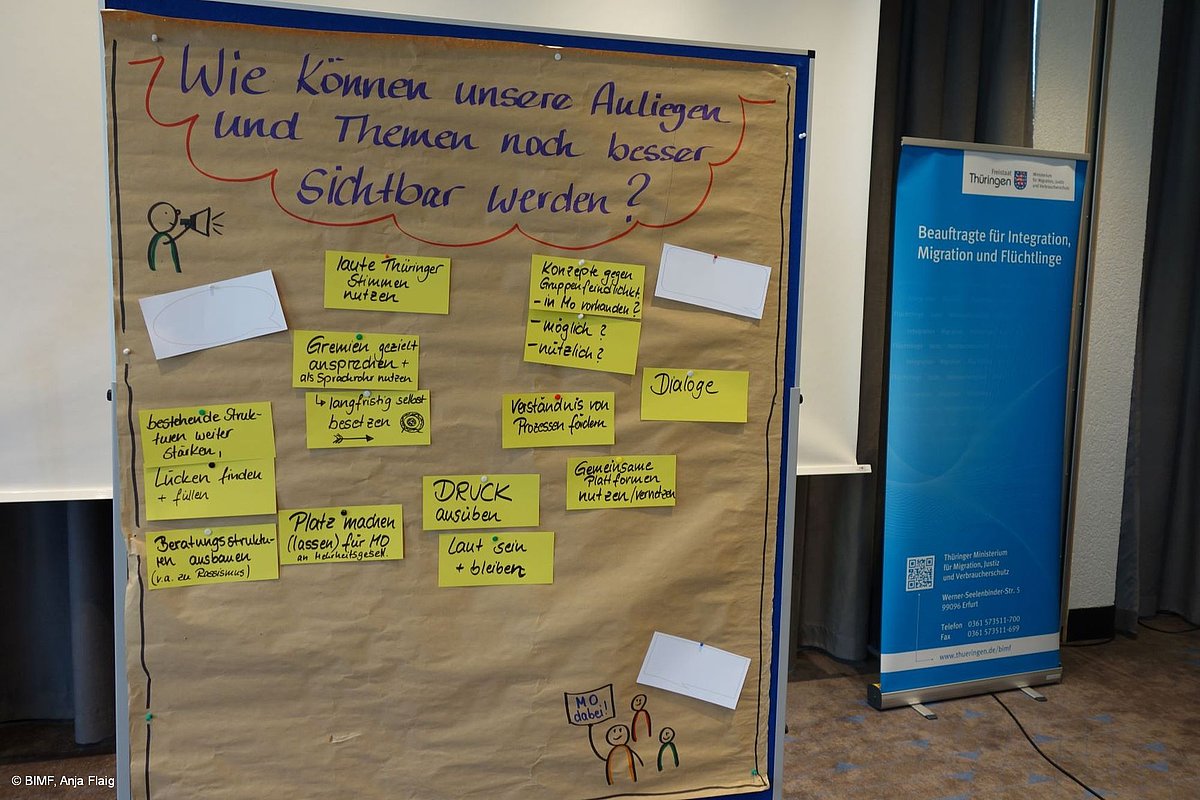 Wie können unsere Anliegen
und Themen noch besser
sichtbar werden?
laute Thüringer
Stimmen
nutzen
Konzepte gegen
Gruppenfeindlichkt.
- in MO vorhanden?
- möglich?
- nützlich?
Gremien gezielt
ansprechen +
als Sprachrohr nutzen
↳ langfristig selbst
besetzen
Dialoge
Verständnis von
Prozessen fördern
bestehende Struk-
turen weiter
stärken,
Lücken finden
+ füllen
Gemeinsame
Plattformen
nutzen/vernetzen
DRUCK
ausüben
Platz machen
(lassen) für MO
an Mehrheitsgesell.
Beratungsstruktu-
ren ausbauen
(v.a. zu Rassismus)
Laut sein
+ bleiben
MO
dabei!
Freistaat
Thüringen
Ministerium
für Migration, Justiz
und Verbraucherschutz
Beauftragte für Integration,
Migration und Flüchtlinge
Thüringer Ministerium
für Migration, Justiz
und Verbraucherschutz
Werner-Seelenbinder-Str. 5
99096 Erfurt
Telefon 0361 573511-700
Fax 0361 573511-699
www.thueringen.de/bimf
© BIMF, Anja Flaig